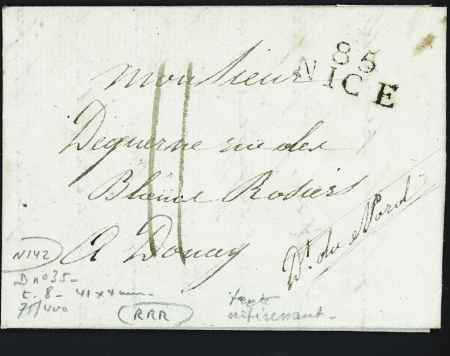 85
NICE
Monsieur
11
Dequerne rue des
Blancs Rosiers
A Douay
Dt. du Nord
N142
D no 35 -
t. 8 - 41 x 4 mm -
75/400
RRR
texte
intéressant -